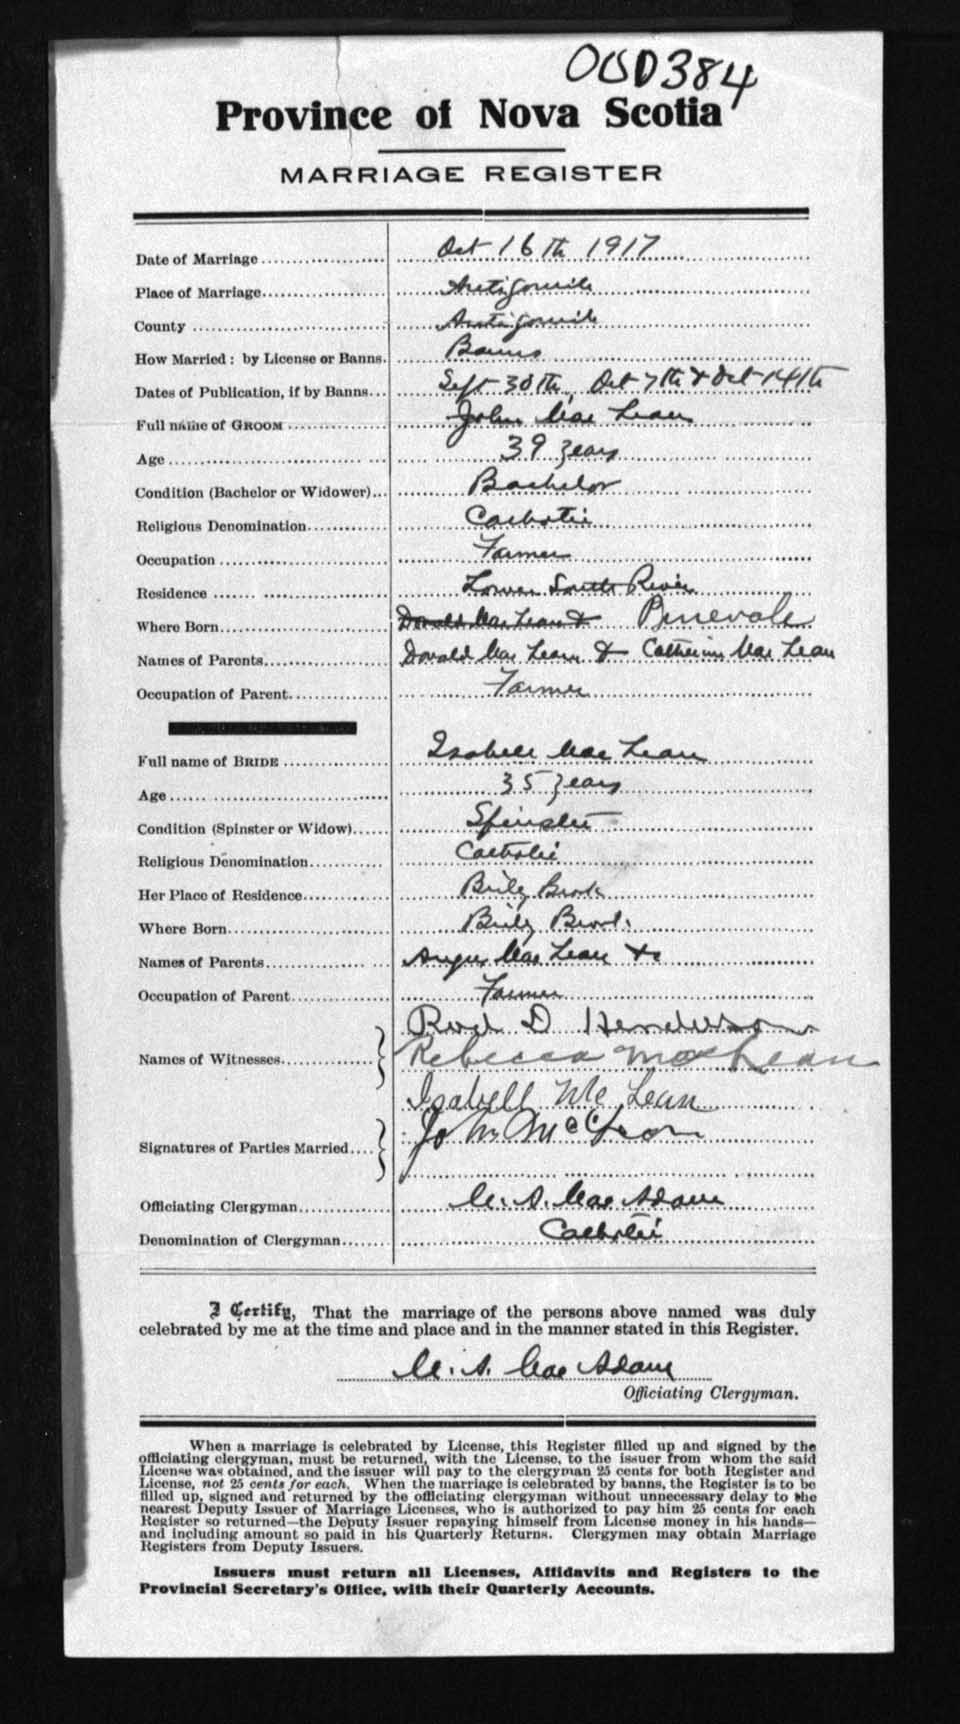 OUD384
Province of Nova Scotia
MARRIAGE REGISTER
Date of Marriage Oct 16th 1917
Place of Marriage Antigonish
County Antigonish
How Married: by License or Banns. Banns
Dates of Publication, if by Banns Sept 30th, Oct 7th & Oct 14th
Full name of GROOM John MacLean
Age 39 years
Condition (Bachelor or Widower) Bachelor
Religious Denomination Catholic
Occupation Farmer
Residence Lower South River
Where Born Donald MacLean & Pinevale
Names of Parents Donald MacLean & Catherine MacLean
Occupation of Parent Farmer
Full name of BRIDE Isabell MacLean
Age 35 years
Condition (Spinster or Widow) Spinster
Religious Denomination Catholic
Her Place of Residence Briley Brook
Where Born Briley Brook
Names of Parents Angus MacLean &
Occupation of Parent Farmer
Rod D Henderson
Names of Witnesses Rebecca MacLean
Isabell Mc Lean
John McLean
Signatures of Parties Married
Officiating Clergyman M. A. MacAdam
Denomination of Clergyman Catholic
I Certify, That the marriage of the persons above named was duly
celebrated by me at the time and place and in the manner stated in this Register.
M. A. MacAdam
Officiating Clergyman.
When a marriage is celebrated by License, this Register filled up and signed by the
officiating clergyman, must be returned, with the License, to the issuer from whom the said
License was obtained, and the issuer will pay to the clergyman 25 cents for both Register and
License, not 25 cents for each. When the marriage is celebrated by banns, the Register is to be
filled up, signed and returned by the officiating clergyman without unnecessary delay to the
nearest Deputy Issuer of Marriage Licenses, who is authorized to pay him 25 cents for each
Register so returned—the Deputy Issuer repaying himself from License money in his hands—
and including amount so paid in his Quarterly Returns. Clergymen may obtain Marriage
Registers from Deputy Issuers.
Issuers must return all Licenses, Affidavits and Registers to the
Provincial Secretary's Office, with their Quarterly Accounts.